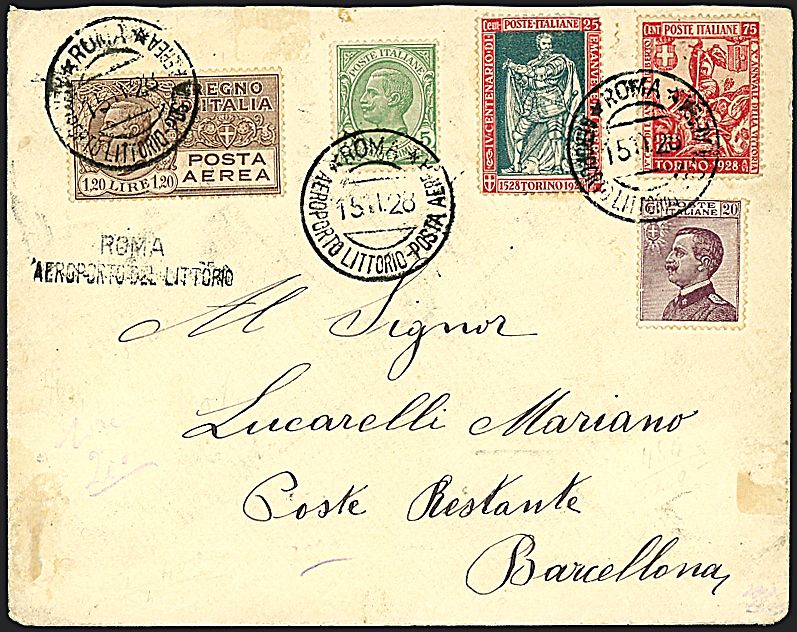 REGNO
D'ITALIA
POSTA
AEREA
1,20 LIRE 1,20
POSTE ITALIANE
5
Cent POSTE·ITALIANE 25
IV CENTENARIO DI EMANVELE
1528 TORINO 192
CENT POSTE ITALIANE 75
X ANNVALE DELLA VITTORIA
TORINO 1928
POSTE 20
ITALIANE
★ ROMA ★
AEROPORTO LITTORIO-POSTA AEREA
15 11 28
★ ROMA ★
AEROPORTO LITTORIO-POSTA AEREA
15 11 28
★ ROMA ★
AEROPORTO LITTORIO-POSTA AEREA
15 11 28
ROMA
AEROPORTO DEL LITTORIO
Al Signor
Lucarelli Mariano
Poste Restante
Barcellona